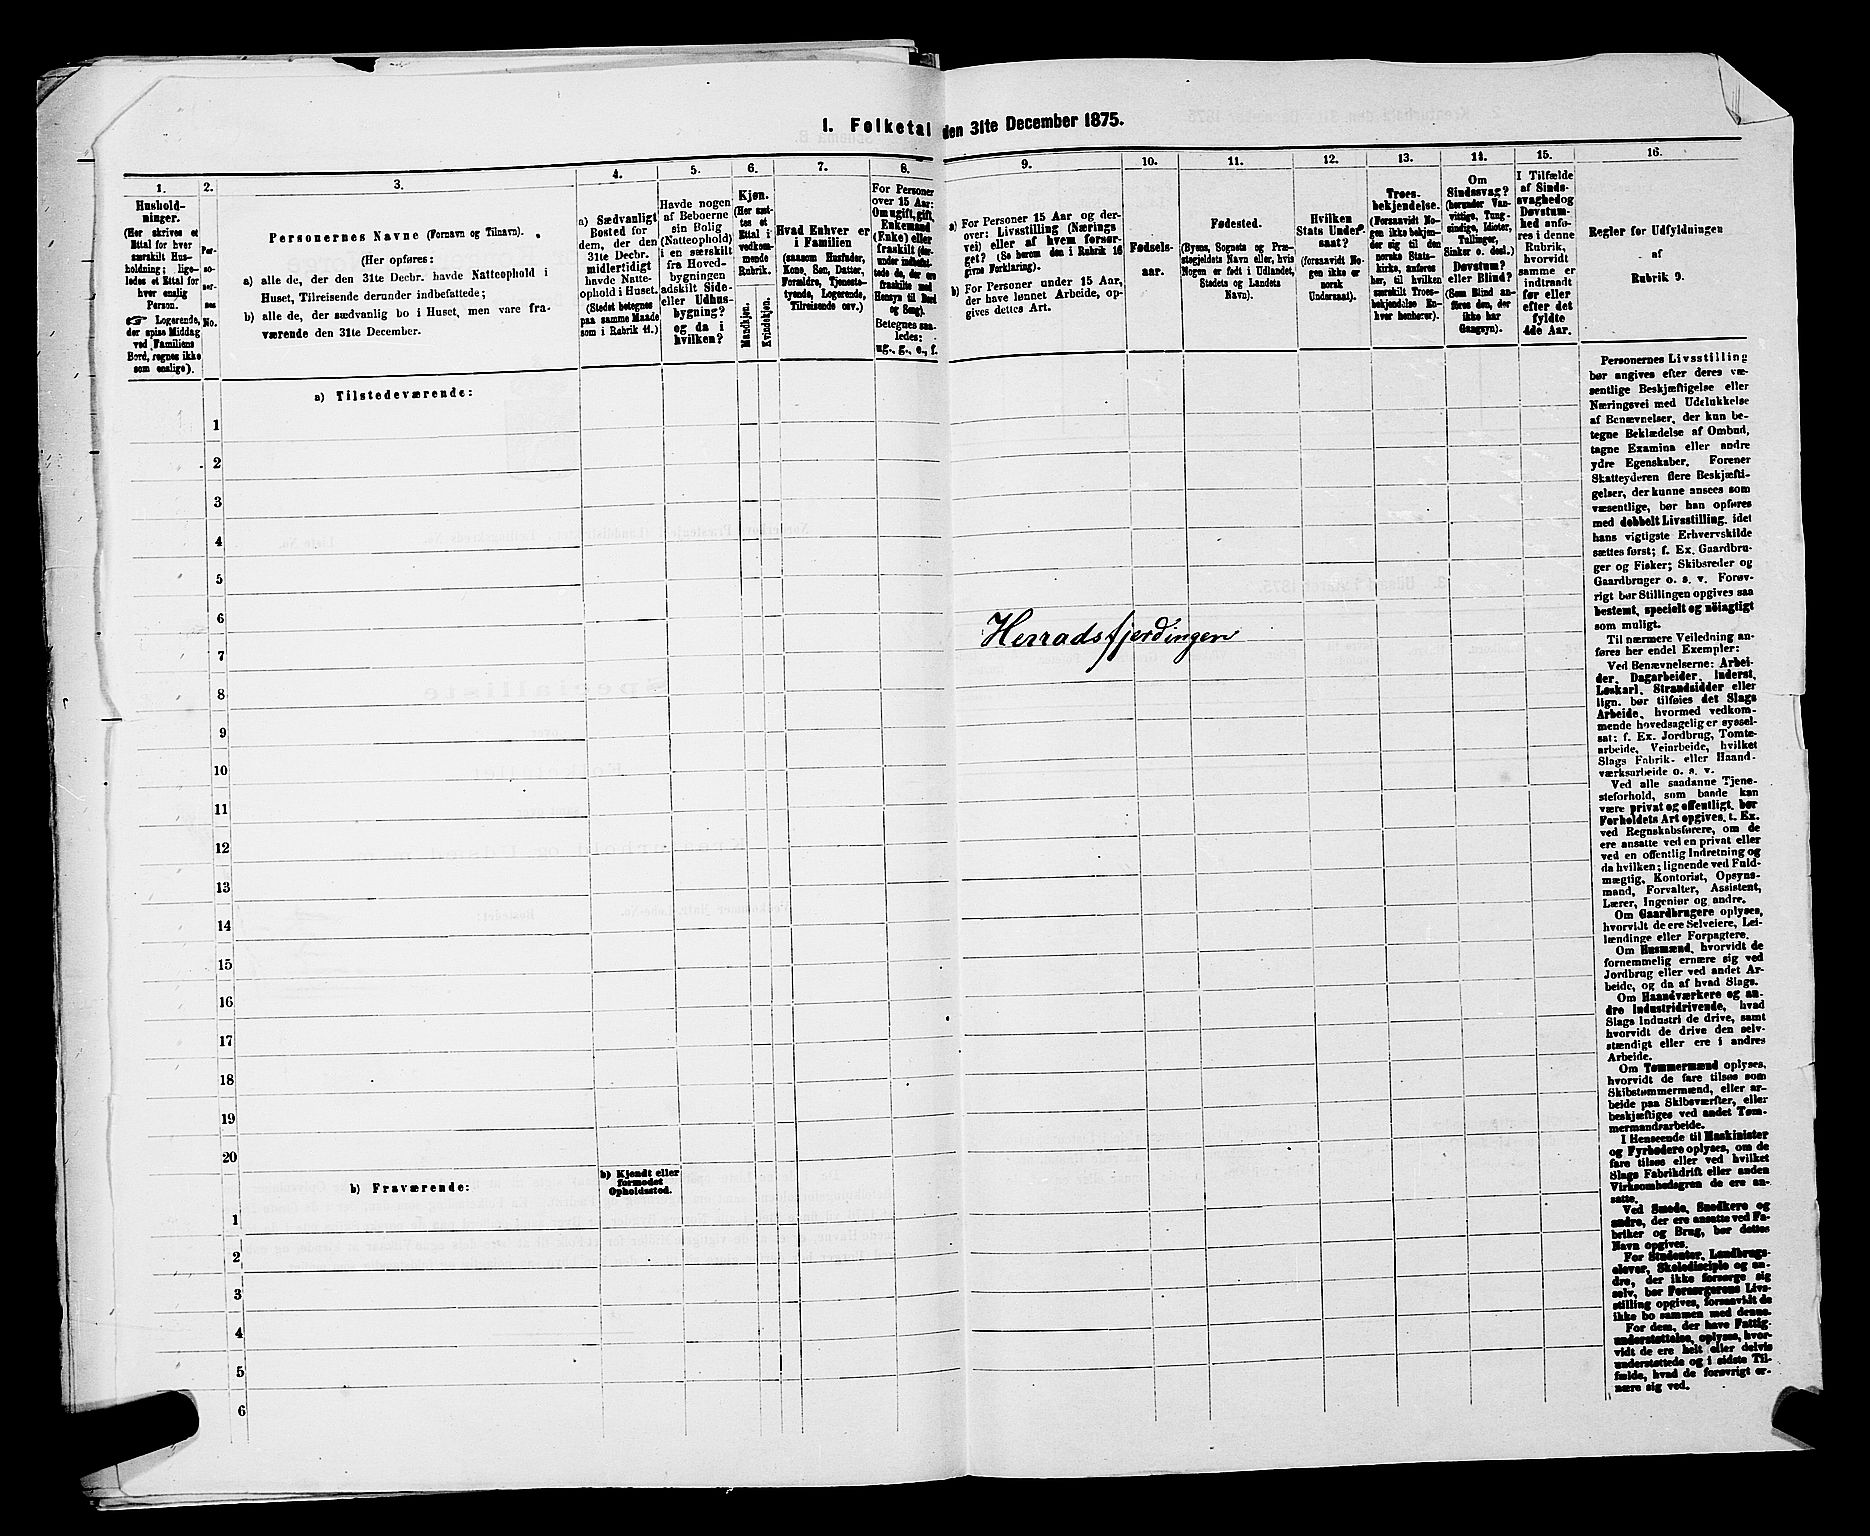 I. Folketal den 31te December 1875.
1.
Hushold-
ninger.
(Her skrives et
Ettal for hver
særskilt Hus-
holdning; lige-
ledes et Ettal for
hver enslig
Person.
☞ Logerende,
der spise Middag
ved Familiens
Bord, regnes ikke
som enslige).
2.
Per-
so-
ner-
nes
No.
3.
Personernes Navne (Fornavn og Tilnavn).
(Her opføres:
a) alle de, der den 31te Decbr. havde Natteophold i
Huset, Tilreisende derunder indbefattede;
b) alle de, der sædvanlig bo i Huset, men vare fra-
værende den 31te December.
4.
a) Sædvanligt
Bosted for
dem, der den
31te Decbr.
midlertidigt
havde Natte-
ophold i Huset.
(Stedet betegnes
paa samme Maade
som i Rubrik 11.)
5.
Havde nogen
af Beboerne
sin Bolig
(Natteophold)
i en særskilt
fra Hoved-
bygningen
adskilt Side-
eller Udhus-
bygning?
og da i
hvilken?
6.
Kjøn.
(Her sæt-
tes et
Ettal i
vedkom-
mende
Rubrik.
Mandkjøn.
Kvindekjøn.
7.
Hvad Enhver er
i Familien
(saasom Husfader,
Kone, Søn, Datter,
Forældre, Tjeneste-
tyende, Logerende,
Tilreisende osv.)
8.
For Personer
over 15 Aar:
Om ugift, gift,
Enkemand
(Enke) eller
fraskilt (der-
under indbefat-
tede de, der ere
fraskilte med
Hensyn til Bord
og Seng).
Betegnes saa-
ledes:
ug., g., e., f.
9.
a) For Personer 15 Aar og der-
over: Livsstilling (Nærings
vei) eller af hvem forsør-
get? (Se herom den i Rubrik 16
givne Forklaring).
b) For Personer under 15 Aar,
der have lønnet Arbeide, op-
gives dettes Art.
10.
Fødsels-
aar.
11.
Fødested.
(Byens, Sognets og Præ-
stegjeldets Navn eller, hvis
Nogen er født i Udlandet,
Stedets og Landets
Navn).
12.
Hvilken
Stats Under-
saat?
(forsaavidt No-
gen ikke er
norsk
Undersaat).
13.
Troes-
bekjendelse.
(Forsaavidt No-
gen ikke bekjen-
der sig til den
norske Stats-
kirke, anføres
her, til hvilken
særskilt Troes-
bekjendelse En-
hver henhører).
14.
Om
Sindssvag?
(herunder Van-
vittige, Tung-
sindige, Idioter,
Tullinger,
Sinker o. desl.)
Døvstum?
eller Blind?
(Som Blind an-
føres den, der
ikke har
Gangsyn).
15.
I Tilfælde
af Sinds-
svaghed og
Døvstum-
hed anfø-
res i denne
Rubrik,
hvorvidt
samme er
indtraadt
før eller
efter det
fyldte
4de Aar.
16.
Regler for Udfyldningen
af
Rubrik 9.
a) Tilstedeværende:
1
2
3
4
5
6
7
8
9
10
11
12
13
14
15
16
17
18
19
20
b) Fraværende:
b) Kjendt eller
formodet
Opholdssted.
1
2
3
4
5
6
Herradsfjerdingen
Personernes Livsstilling
bør angives efter deres væ-
sentlige Beskjæftigelse eller
Næringsvei med Udelukkelse
af Benævnelser, der kun be-
tegne Beklædelse af Ombud,
tagne Examina eller andre
ydre Egenskaber. Forener
Skatteyderen flere Beskjæfti-
gelser, der kunne ansees som
væsentlige, bør han opføres
med dobbelt Livsstilling, idet
hans vigtigste Erhvervskilde
sættes først; f. Ex. Gaardbru-
ger og Fisker; Skibsreder og
Gaardbruger o. s. v. Forøv-
rigt bør Stillingen opgives saa
bestemt, specielt og nöiagtigt
som muligt.
Til nærmere Veiledning an-
føres her endel Exempler:
Ved Benævnelserne: Arbei-
der, Dagarbeider, Inderst,
Løskarl, Strandsidder eller
lign. bør tilføies det Slags
Arbeide, hvormed vedkom-
mende hovedsagelig er syssel-
sat: f. Ex. Jordbrug, Tomte-
arbeide, Veiarbeide, hvilket
Slags Fabrik- eller Haand-
værksarbeide o. s. v.
Ved alle saadanne Tjene-
steforhold, som baade kan
være privat og offentligt, bør
Forholdets Art opgives, t. Ex.
ved Regnskabsførere, om de
ere ansatte ved en privat eller
ved en offentlig Indretning og
da hvilken; lignende ved Fuld-
mægtig, Kontorist, Opsyns-
mand, Forvalter, Assistent,
Lærer, Ingeniør og andre.
Om Gaardbrugere oplyses,
hvorvidt de ere Selveiere, Lei-
lændinge eller Forpagtere.
Om Husmænd, hvorvidt de
fornemmelig ernære sig ved
Jordbrug eller ved andet Ar-
beide, og da af hvad Slags.
Om Haandværkere og an-
dre Industridrivende, hvad
Slags Industri de drive, samt
hvorvidt de drive den selv-
stændigt eller ere i andres
Arbeide.
Om Tømmermænd oplyses,
hvorvidt de fare tilsøs som
Skibstømmermænd, eller ar-
beide paa Skibsværfter, eller
beskjæftiges ved andet Tøm-
mermandsarbeide.
I Henseende til Maskinister
og Fyrbødere oplyses, om de
fare tilsøs eller ved hvilket
Slags Fabrikdrift eller anden
Virksomhedsgren de ere an-
satte.
Ved Smede, Snedkere og
andre, der ere ansatte ved Fa-
briker og Brug, bør dettes
Navn opgives.
For Studenter, Landbrugs-
elever, Skoledisciple og an-
dre, der ikke forsørge sig
selv, bør Forsørgerens Livs-
stilling opgives, forsaavidt de
ikke bo sammen med denne.
For dem, der have Fattig-
understøttelse, oplyses, hvor-
vidt de ere helt eller delvis
understøttede og i sidste Til-
fælde, hvad de forøvrigt er-
nære sig ved.